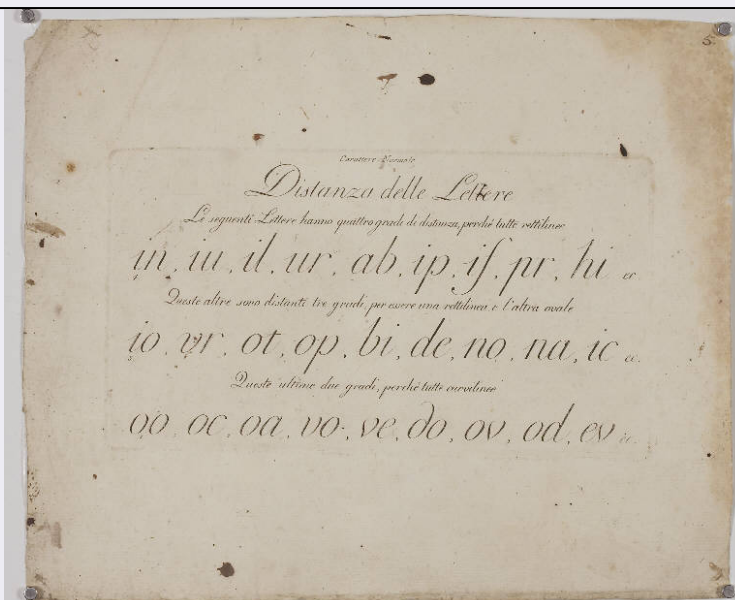 Distanza delle Lettere
Le seguenti Lettere hanno quattro gradi di distanza, perchè tutte rettilinee
in, iu, il, ur, ab, ip, iſ, pr, hi &c.
Queste altre sono distanti tre gradi, per essere una rettilinea, e l'altra ovale
io, vr, ot, op, bi, de, no, na, ic &c.
Queste ultime due gradi, perchè tutte curvilinee
oo, oc, oa, vo, ve, do, ov, od, ev &c.